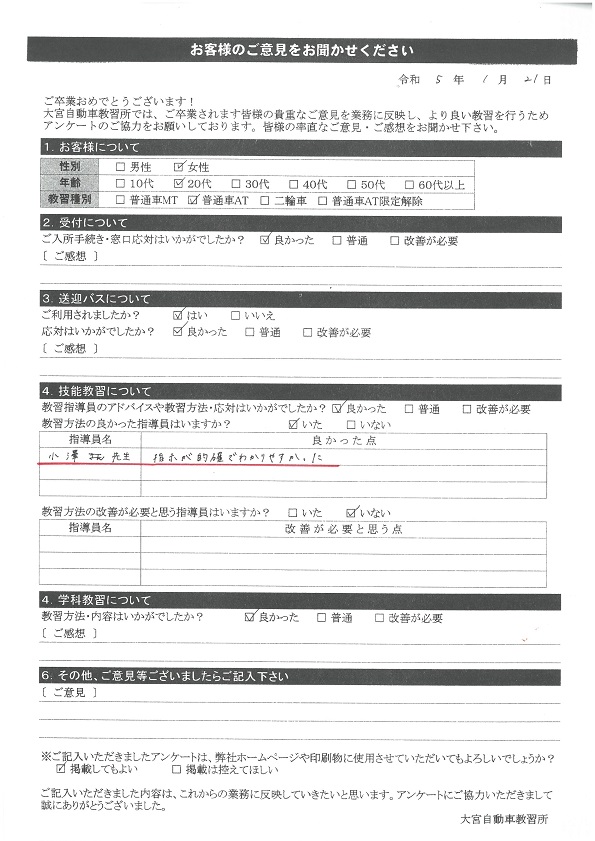 お客様のご意見をお聞かせください
令和 5 年 1 月 21 日
ご卒業おめでとうございます！
大宮自動車教習所では、ご卒業されます皆様の貴重なご意見を業務に反映し、より良い教習を行うため
アンケートのご協力をお願いしております。皆様の率直なご意見・ご感想をお聞かせ下さい。
1. お客様について
性別 □ 男性 ☑ 女性
年齢 □ 10代 ☑ 20代 □ 30代 □ 40代 □ 50代 □ 60代以上
教習種別 □ 普通車MT ☑ 普通車AT □ 二輪車 □ 普通車AT限定解除
2. 受付について
ご入所手続き・窓口応対はいかがでしたか？ ☑ 良かった □ 普通 □ 改善が必要
〔 ご感想 〕
3. 送迎バスについて
ご利用されましたか？ ☑ はい □ いいえ
応対はいかがでしたか？ ☑ 良かった □ 普通 □ 改善が必要
〔 ご感想 〕
4. 技能教習について
教習指導員のアドバイスや教習方法・応対はいかがでしたか？ ☑ 良かった □ 普通 □ 改善が必要
教習方法の良かった指導員はいますか？ ☑ いた □ いない
指導員名 良かった点
小澤 先生 指示が的確でわかりやすかった
教習方法の改善が必要と思う指導員はいますか？ □ いた ☑ いない
指導員名 改善が必要と思う点
4. 学科教習について
教習方法・内容はいかがでしたか？ ☑ 良かった □ 普通 □ 改善が必要
〔 ご感想 〕
6. その他、ご意見等ございましたらご記入下さい
〔 ご意見 〕
※ご記入いただきましたアンケートは、弊社ホームページや印刷物に使用させていただいてもよろしいでしょうか？
☑ 掲載してもよい □ 掲載は控えてほしい
ご記入いただきました内容は、これからの業務に反映していきたいと思います。アンケートにご協力いただきまして
誠にありがとうございました。
大宮自動車教習所